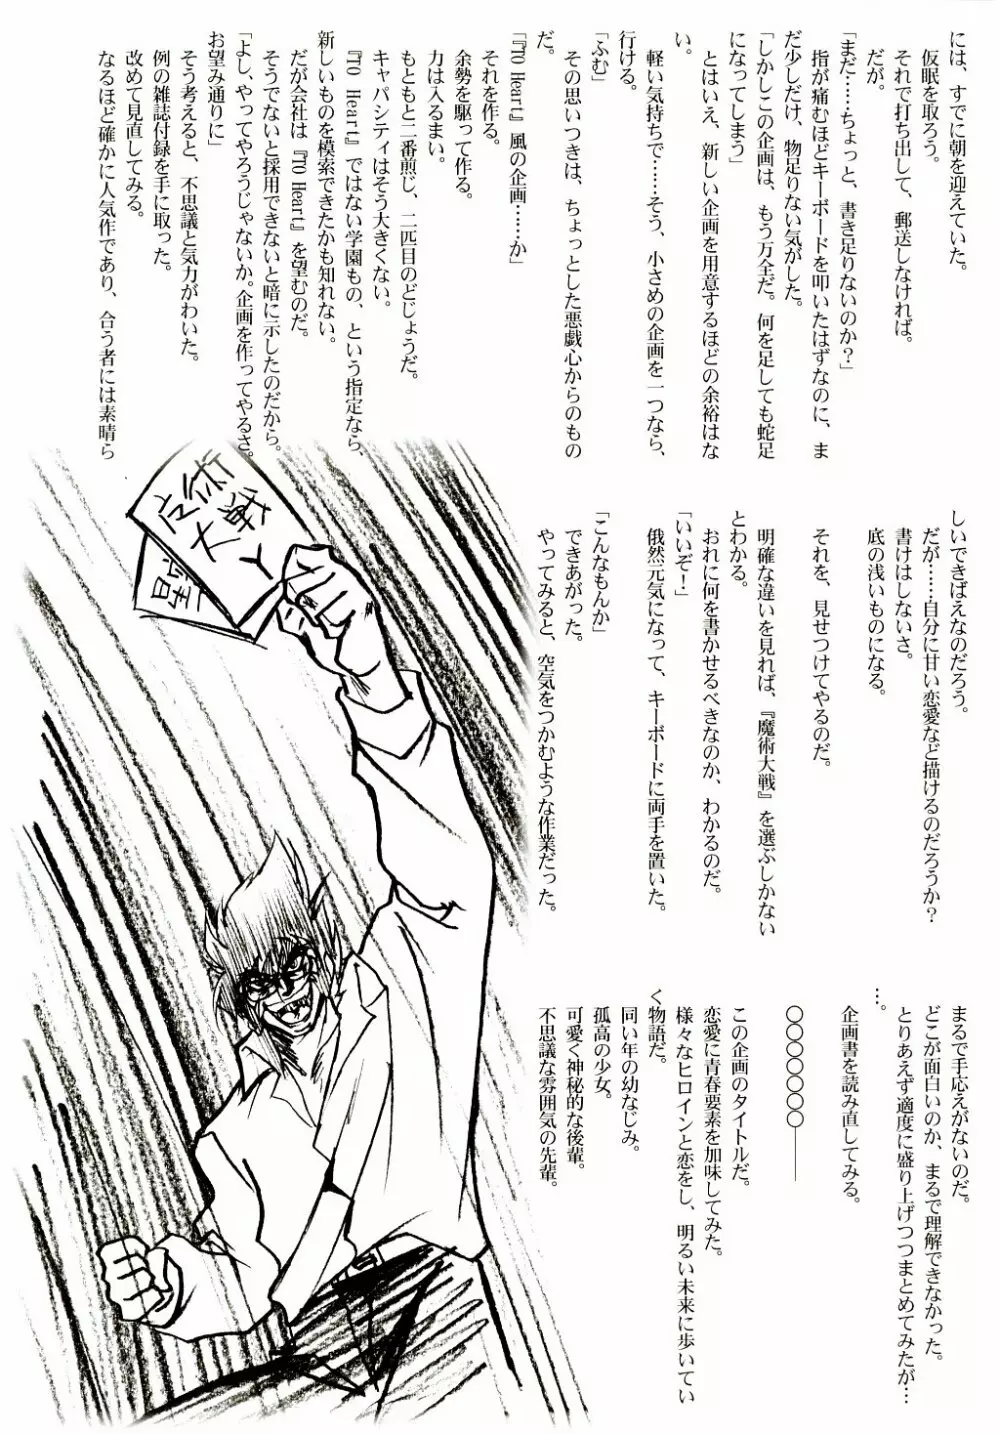 には、すでに朝を迎えていた。
仮眠を取ろう。
それで打ち出して、郵送しなければ。
だが。
「まだ……ちょっと、書き足りないのか？」
指が痛むほどキーボードを叩いたはずなのに、ま
だ少しだけ、物足りない気がした。
「しかしこの企画は、もう万全だ。何を足しても蛇足
になってしまう」
とはいえ、新しい企画を用意するほどの余裕はな
い。
軽い気持ちで……そう、小さめの企画を一つなら、
行ける。
「ふむ」
その思いつきは、ちょっとした悪戯心からのもの
だ。
「『TO Heart』風の企画……か」
それを作る。
余勢を駆って作る。
力は入るまい。
もともと二番煎じ、二匹目のどじょうだ。
キャパシティはそう大きくない。
『TO Heart』ではない学園もの、という指定なら、
新しいものを模索できたかも知れない。
だが会社は『TO Heart』を望むのだ。
そうでないと採用できないと暗に示したのだから。
「よし、やってやろうじゃないか。企画を作ってやるさ。
お望み通りに」
そう考えると、不思議と気力がわいた。
例の雑誌付録を手に取った。
改めて見直してみる。
なるほど確かに人気作であり、合う者には素晴ら
しいできばえなのだろう。
だが……自分に甘い恋愛など描けるのだろうか？
書けはしないさ。
底の浅いものになる。
それを、見せつけてやるのだ。
明確な違いを見れば、『魔術大戦』を選ぶしかない
とわかる。
おれに何を書かせるべきなのか、わかるのだ。
「いいぞ！」
俄然元気になって、キーボードに両手を置いた。
「こんなもんか」
できあがった。
やってみると、空気をつかむような作業だった。
まるで手応えがないのだ。
どこが面白いのか、まるで理解できなかった。
とりあえず適度に盛り上げつつまとめてみたが…
…。
企画書を読み直してみる。
〇〇〇〇〇〇〇――――
この企画のタイトルだ。
恋愛に青春要素を加味してみた。
様々なヒロインと恋をし、明るい未来に歩いてい
く物語だ。
同い年の幼なじみ。
孤高の少女。
可愛く神秘的な後輩。
不思議な雰囲気の先輩。